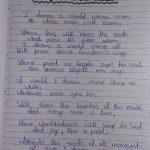 I dream a world where man
No other man will scorn,
Where love will bless the earth
And peace its paths adorn
I dream a world where all
Will know sweet freedom's way,
Where greed no longer saps the soul
Nor avarice blights our day.
A world I dream where black or white,
Whatever race you be,
Will share the bounties of the earth
And every man is free,
Where wretchedness will hang its head
And joy, like a pearl,
Attends the needs of all mankind